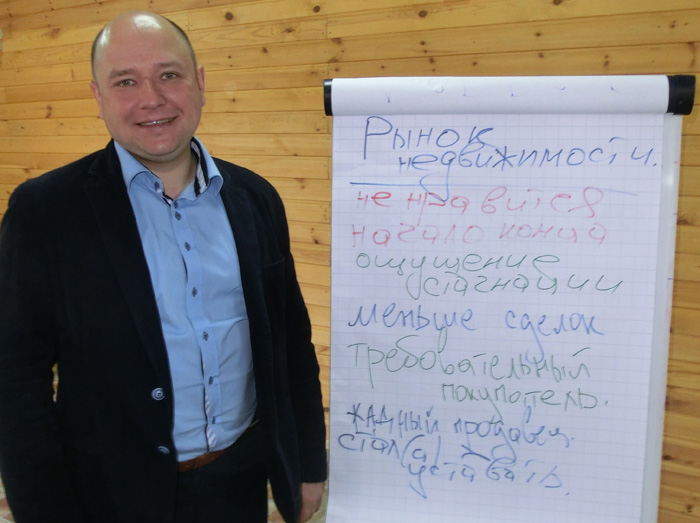 Рынок
недвижимости.
не нравится
начало конца
ощущение
стагнации
меньше сделок
требовательный
покупатель.
жадный продавец.
стал(а)
уставать.